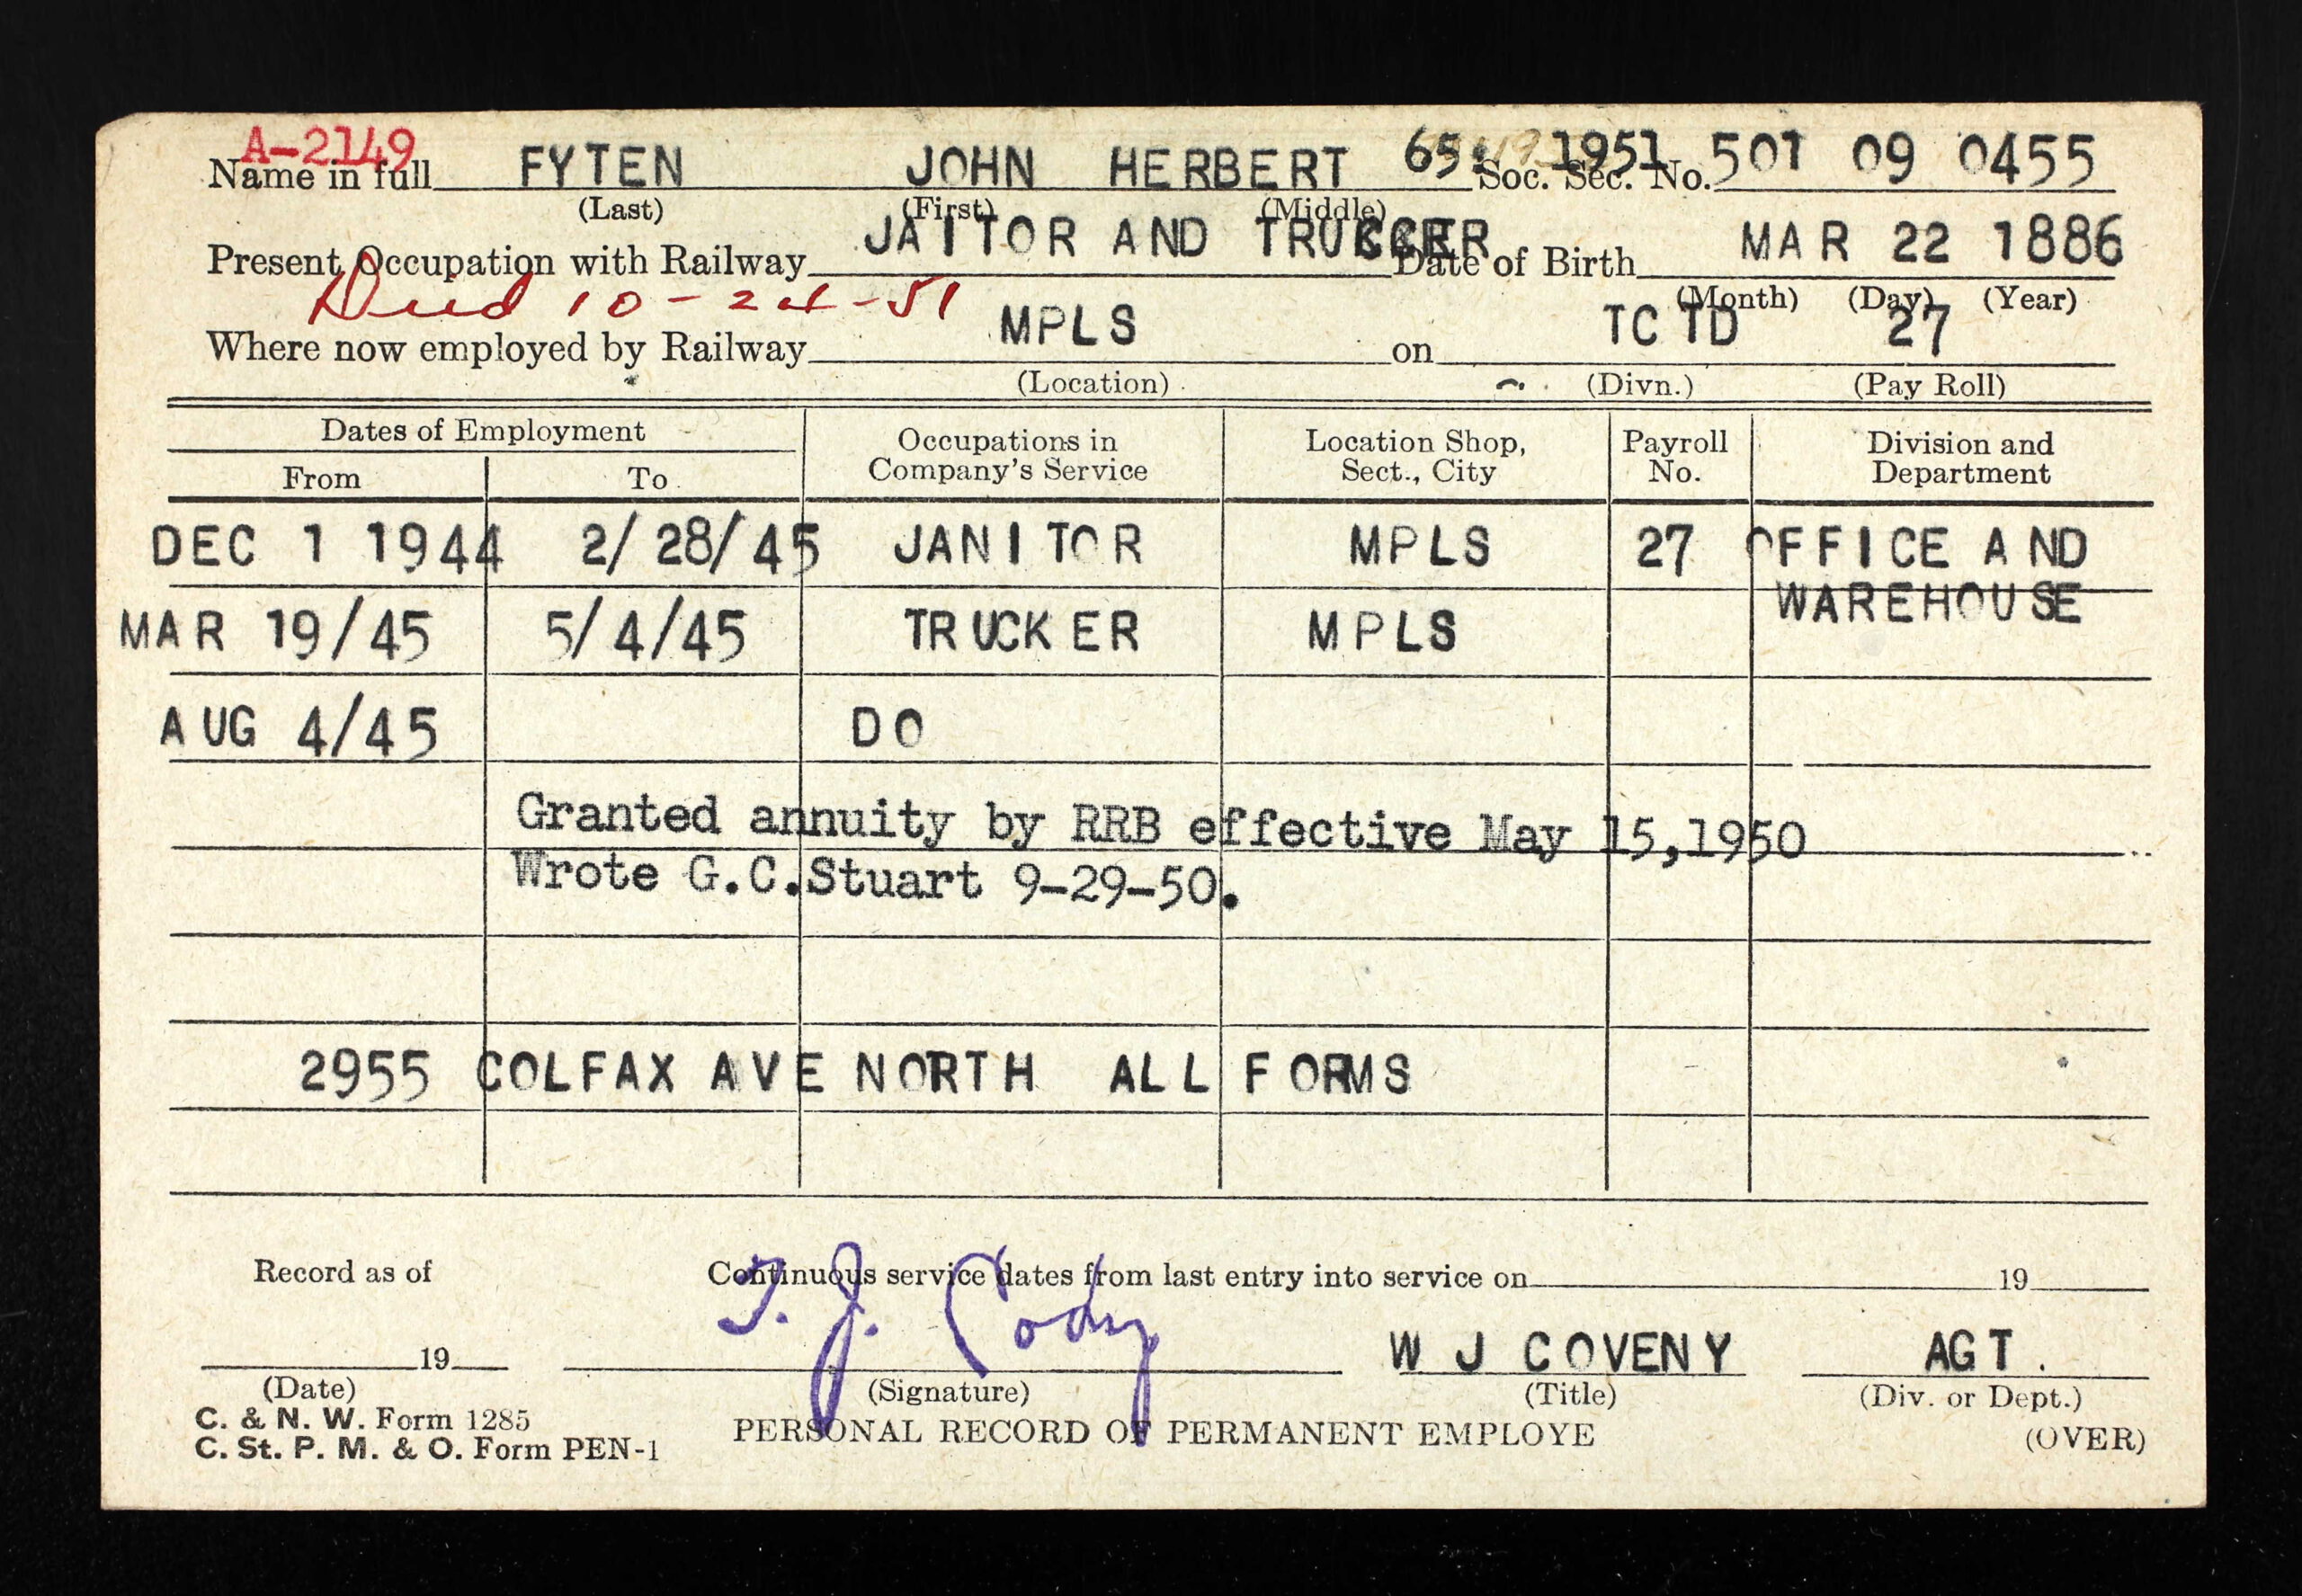 A-2149
Name in full FYTEN JOHN HERBERT 65: 1951 Soc. Sec. No. 501 09 0455
(Last) (First) (Middle)
Present Occupation with Railway JAITOR AND TRUCKER Date of Birth MAR 22 1886
(Month) (Day) (Year)
Died 10-24-51
Where now employed by Railway MPLS on TC TD 27
(Location) (Divn.) (Pay Roll)
Dates of Employment Occupations in Company's Service Location Shop, Sect., City Payroll No. Division and Department
From To
DEC 1 1944 2/28/45 JANITOR MPLS 27 OFFICE AND
WAREHOUSE
MAR 19/45 5/4/45 TRUCKER MPLS
AUG 4/45 DO
Granted annuity by RRB effective May 15,1950
Wrote G.C.Stuart 9-29-50.
2955 COLFAX AVE NORTH ALL FORMS
Record as of Continuous service dates from last entry into service on 19
T. J. Cody
19 W J COVENY AGT.
(Date) (Signature) (Title) (Div. or Dept.)
C. & N. W. Form 1285
C. St. P. M. & O. Form PEN-1 PERSONAL RECORD OF PERMANENT EMPLOYE (OVER)